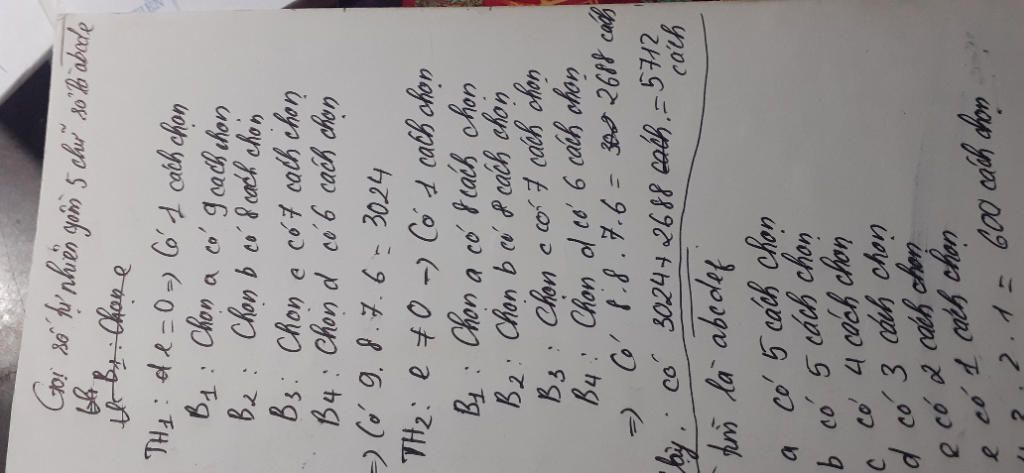 Gọi số tự nhiên gồm 5 chữ số là abcde
B1: Chọn e
TH1: e = 0 => Có 1 cách chọn
B1: Chọn a có 9 cách chọn
B2: Chọn b có 8 cách chọn
B3: Chọn c có 7 cách chọn
B4: Chọn d có 6 cách chọn
=> Có 9.8.7.6 = 3024
TH2: e ≠ 0 -> Có 1 cách chọn
B1: Chọn a có 8 cách chọn
B2: Chọn b có 8 cách chọn
B3: Chọn c có 7 cách chọn
B4: Chọn d có 6 cách chọn
=> Có 8.8.7.6 = 2688 cách
Vậy: có 3024 + 2688 cách = 5712
cách
tìm là abcdef
a có 5 cách chọn
b có 5 cách chọn
c có 4 cách chọn
d có 3 cách chọn
e có 2 cách chọn
e có 1 cách chọn
3.2.1 = 600 cách chọn